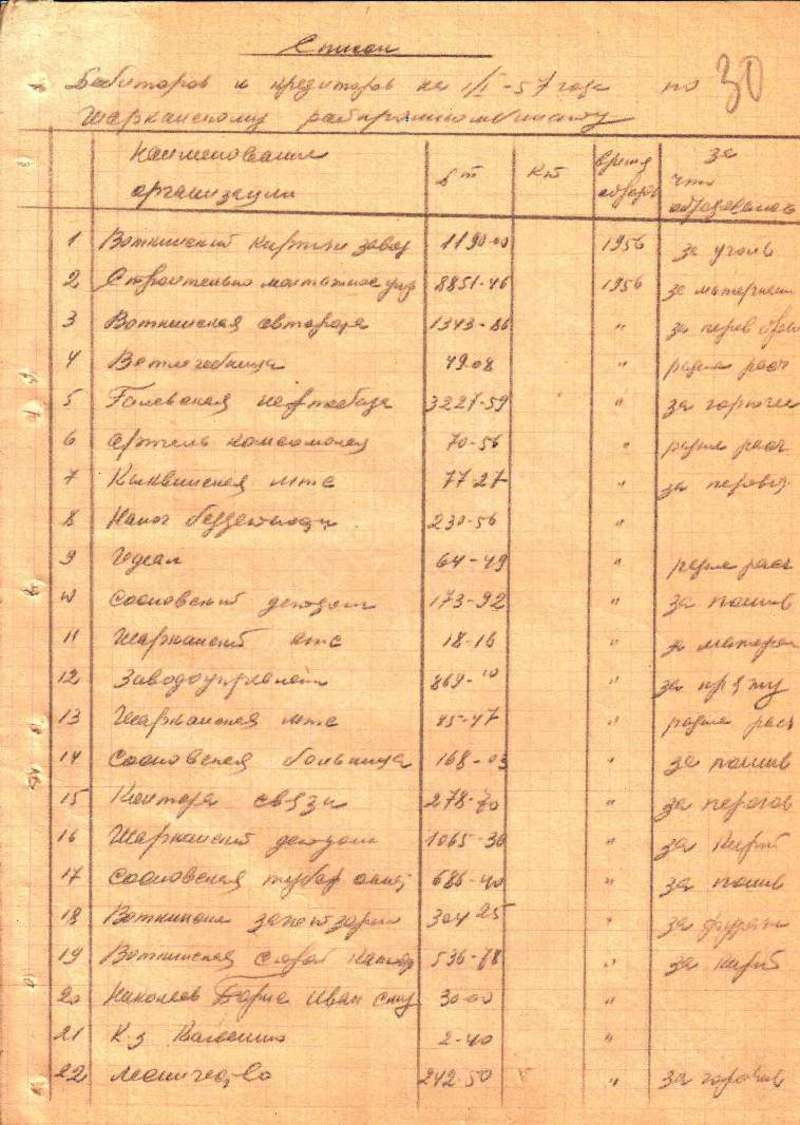 Список
Дебиторов и кредиторов на 1/I-57 года по 30
Шарканскому райпромкомбинату
наименование организации Дт Кт время образов за что образовалась
1 Воткинский кирпич завод 1190-00 1956 за уголь
2 Строительно монтажное упр 8851-46 1956 за материал
3 Воткинская автората 1343-86 " за перев
4 Ветлечебница 49.08 " разные расч
5 Галевская нефтебаза 3221-59 " за горючее
6 артель комсомолка 70-56 " разные расч
7 Кыквинская мтс 77 27 " за перевоз
8 Налог 230-56 "
9 Идеал 64-49 " разные расч
10 Сосновский детдом 173-92 " за пошив
11 Шарканский мтс 18-16 " за матери
12 Заводоуправлен 869-10 " за
13 Шарканская мтс 45-47 " разные расч
14 Сосновская больница 168-03 " за пошив
15 Контора связи 278-70 " за перегов
16 Шарканский детдом 1065-30 " за Кирпич
17 Сосновская 686-40 " за пошив
18 Воткинское 304 25 " за
19 Воткинская 536-88 " за Кирпич
20 Николаев Иван 30-00 "
21 К-з 2-40 "
22 242-50 "